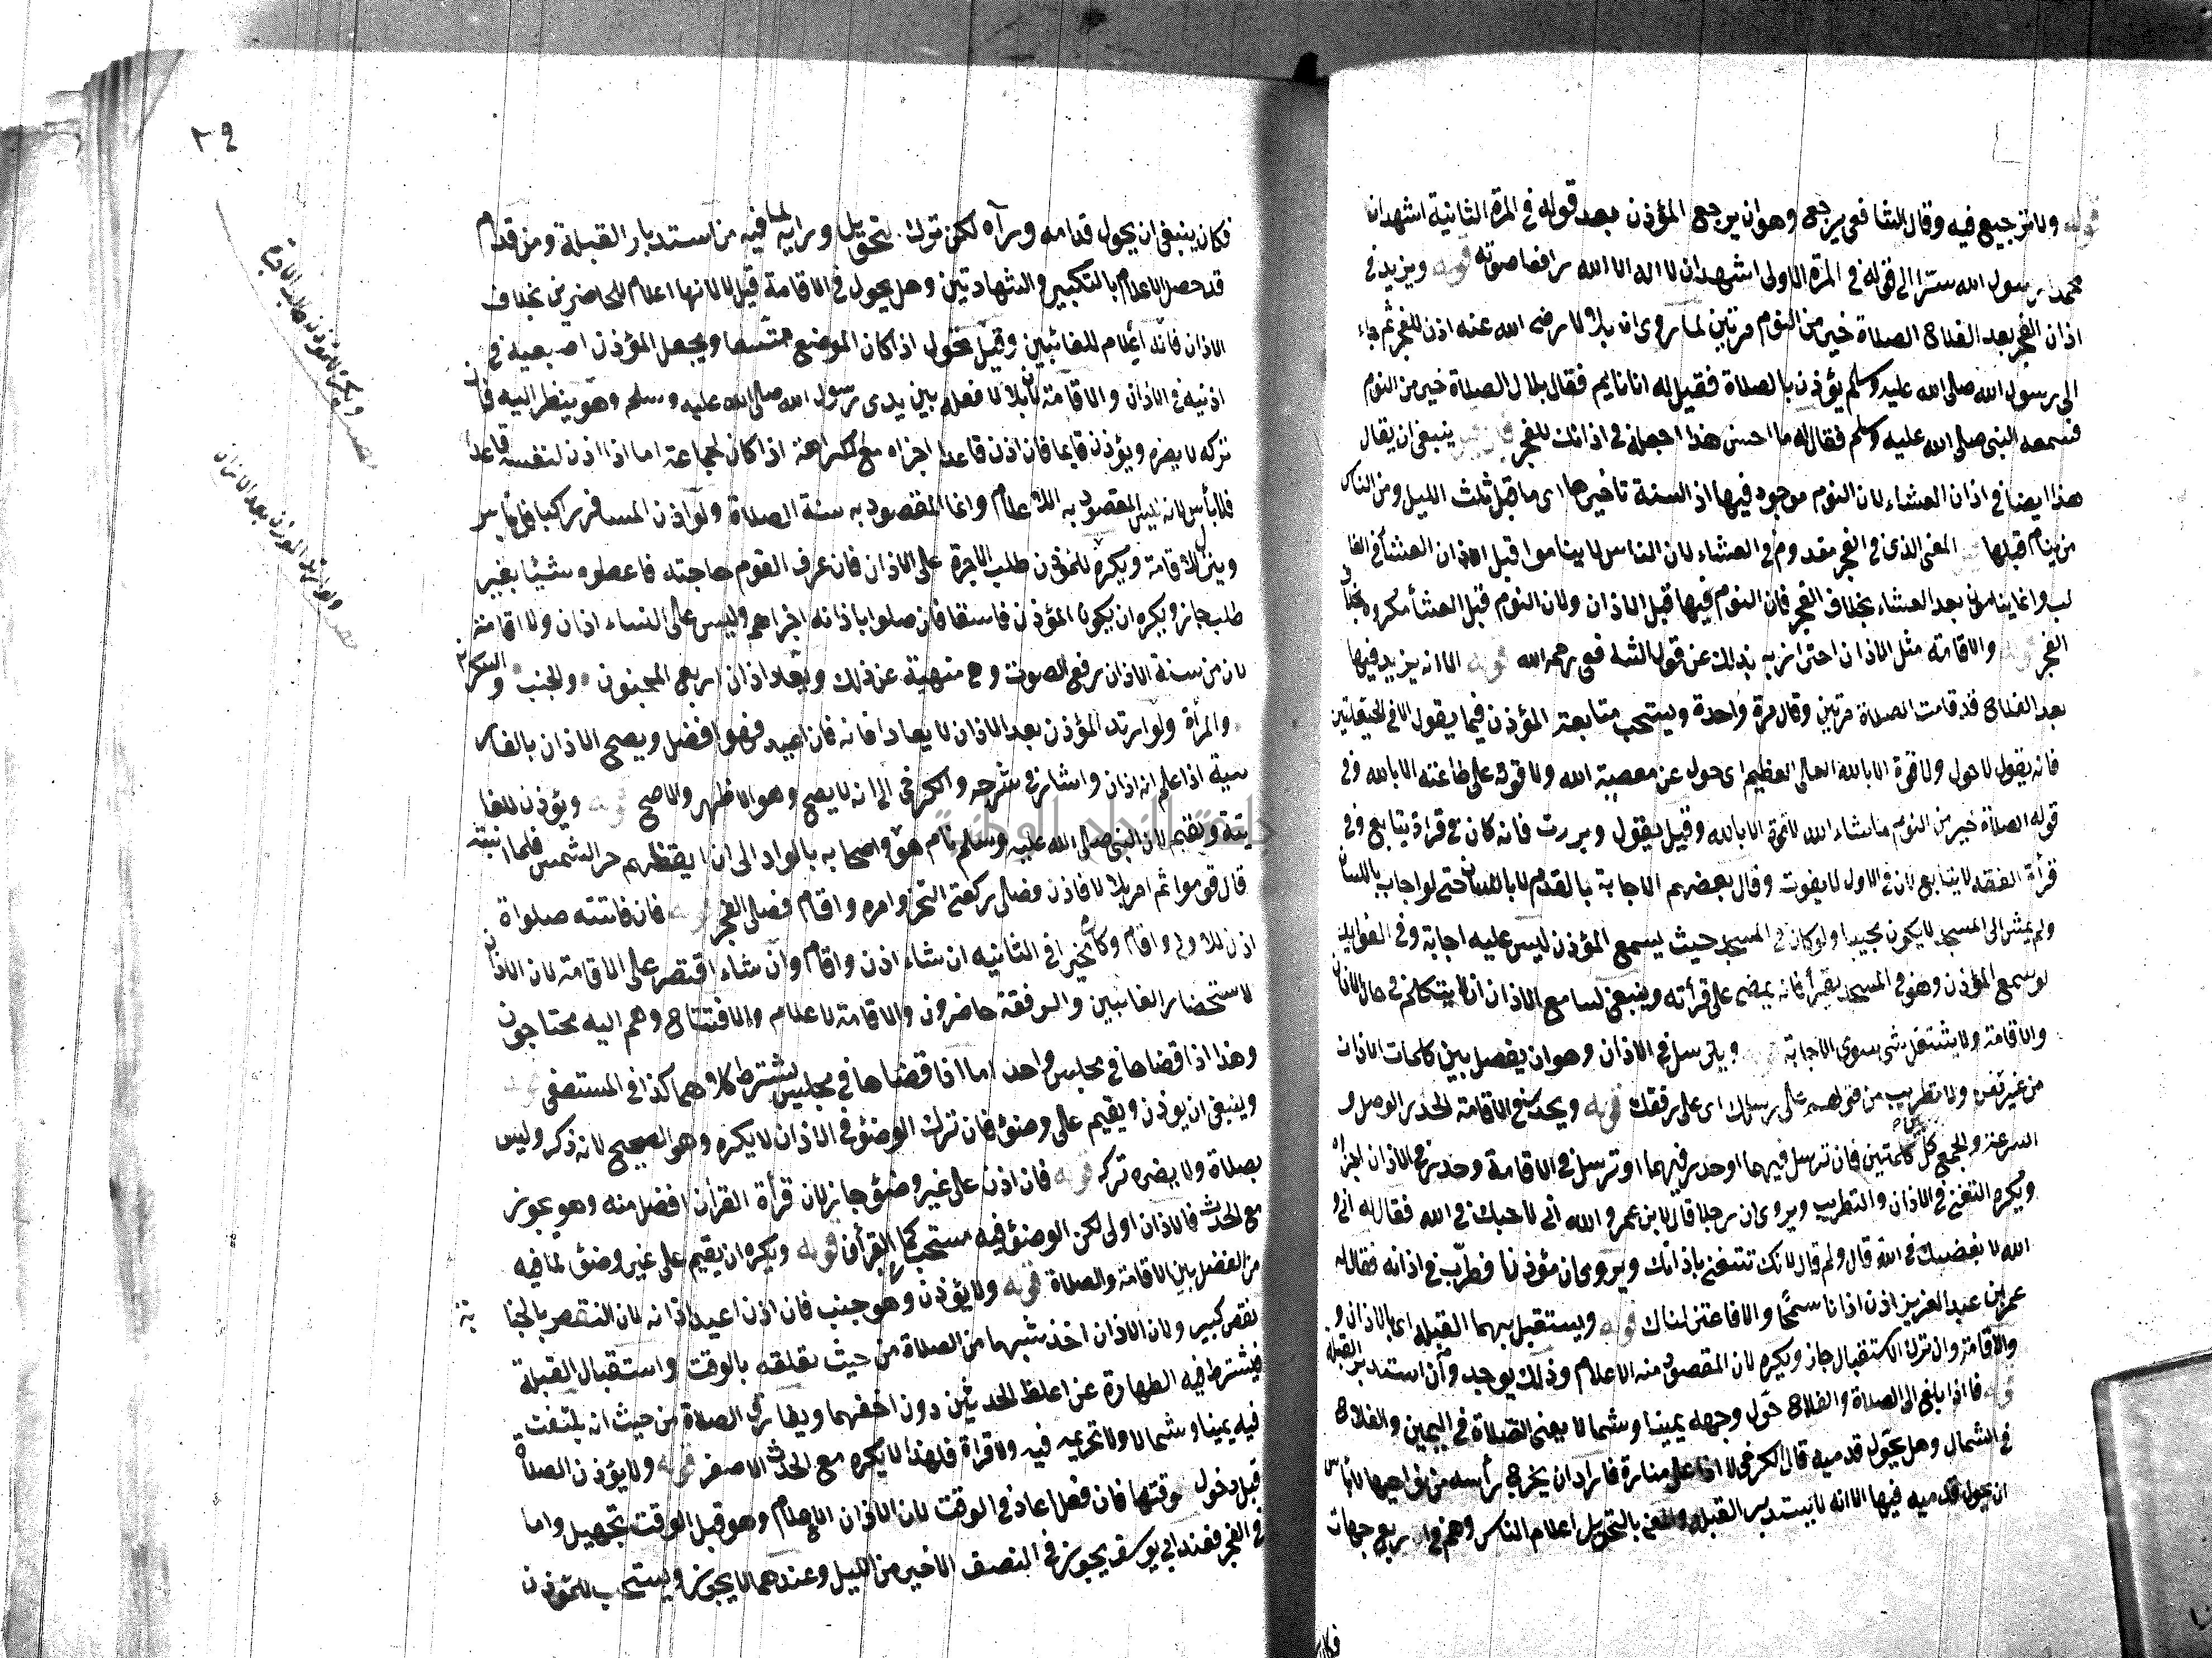 قوله ولا ترجيع فيه وقال الشافعي يرجع وهو ان يرجع المؤذن بعد قوله في المرة الثانية اشهد ان
محمدا رسول الله سترا الى قوله في المرة الاولى اشهد ان لا اله الا الله رافعا صوته قوله ويزيد في
اذان الفجر بعد الفلاح الصلاة خير من النوم مرتين لما روى ان بلالا رضى الله عنه اذن للفجر ثم جاء
الى رسول الله صلى الله عليه وسلم يؤذن بالصلاة فقيل له انا نايم فقال بلال الصلاة خير من النوم
فسمعه النبي صلى الله عليه وسلم فقال له ما احسن هذا اجعله في اذانك للفجر فان قيل ينبغى ان يقال
هذا ايضا في اذان العشاء لان النوم موجود فيها اذ السنة تاخيرها اى ما قبل ثلث الليل ومن الناس
من ينام قبلها المعنى الذى في الفجر معدوم في العشاء لان الناس لا يناموا قبل اذان العشاء في الغا
لب وانما ينامون بعد العشاء بخلاف الفجر فان النوم فيها قبل الاذان ولان النوم قبل العشاء مكروه بخلاف
الفجر قوله والاقامة مثل الاذان احترز به بذلك عن قول الشافعى رحمه الله قوله الا انه يزيد فيها
بعد الفلاح قد قامت الصلاة مرتين وقال مرة واحدة ويستحب متابعة المؤذن فيما يقول الا في الحيعلتين
فانه يقول لا حول ولا قوة الا بالله العلى العظيم اى حول عن معصية الله ولا قوة على طاعته الا بالله وفي
قوله الصلاة خير من النوم ما شاء الله لا قوة الا بالله وقيل يقول وبررت فانه كان في قراة يتابع وفي
قرأة الفقه لا يتابع لان في الاول لا يفوت وقال بعضهم الاجابة بالقدم لا باللسان حتى لو اجاب باللسان
ولم يمش الى المسجد لا يكون مجيبا ولو كان في المسجد حيث يسمع المؤذن ليس عليه اجابة وفي الفوايد
لو سمع المؤذن وهو في المسجد يقرأ فانه يمضى على قرأته وينبغى لسامع الاذان ان لا يتكلم في حال الاذان
والاقامة ولا يشتغل بشى سوى الاجابة قوله ويترسل في الاذان وهو ان يفصل بين كلمات الاذان
من غير تغن ولا تطريب من قولهم على رسلك اى على رفقك قوله ويحدر في الاقامة الحدر الوصل و
السرعة والجمع بين كل كلمتين فان ترسل فيهما او حدر فيهما او ترسل في الاقامة وحدر في الاذان اجزاه
ويكره التغنى في الاذان والتطريب ويروى ان رجلا قال لابن عمر والله انى لاحبك في الله فقال له انى و
الله لا بغضك في الله قال ولم قال لانك تتغنى باذانك ويروى ان مؤذنا فطرب في اذانه فقال له
عمر بن عبد العزيز اذن اذانا سمحا والا فاعتزلناك قوله ويستقبل بهما القبلة اى بالاذان و
والاقامة وان ترك الاستقبال جاز ويكره لان المقصود منه الاعلام وذلك يوجد وان استدبر القبلة
قوله فاذا بلغ الى الصلاة والفلاح حول وجهه يمينا وشمالا يعنى الصلاة في اليمين والفلاح
في الشمال وهل يحول قدميه قال الكرخى لا اذا على منارة فاراد ان يخرج رأسه من نواحيها لا باس
ان يحول قدميه فيها الا انه لا يستدبر القبلة والمعنى بالتحويل اعلام الناس وهم في اربع جهات
فكان
٢٩
فكان ينبغى ان يحول قدامه وورآه لكن ترك تحويل ورايه لما فيه من استدبار القبلة ومن قدام
قد حصل الاعلام بالتكبير والشهادتين وهل يحول في الاقامة قيل لا لانها اعلام للحاضرين بخلاف
الاذان فانه اعلام للغائبين وقيل يحول اذا كان الموضع متسعا ويجعل المؤذن اصبعيه في
اذنيه في الاذان والاقامة لان بلالا فعله بين يدى رسول الله صلى الله عليه وسلم وهو ينظر اليه فان
تركه لا يضره ويؤذن قايما فان اذن قاعدا اجزاه مع الكراهة اذا كان لجماعة اما اذا اذن لنفسه قاعدا
فلا بأس لانه ليس المقصود به الاعلام وانما المقصود به سنة الصلاة ولو اذن المسافر راكبا فلا بأس
وينزل للاقامة ويكره للمؤذن طلب الاجرة على الاذان فان عرف القوم حاجته فاعطوه شيئا بغير
طلب جاز ويكره ان يكون المؤذن فاسقا فان صلوا باذانه اجزاهم وليس على النساء اذان ولا اقامة
لان من سنة الاذان رفع الصوت وهى منهية عن ذلك ويعاد اذان اربع المجنون والجنب والسكران
والمرأة ولو ارتد المؤذن بعد الاذان لا يعاد اذانه فان اعيد فهو افضل ويصح الاذان بالفار
سية اذا علم انه اذان واشار في شرحه والكرخى الى انه لا يصح وهو الاظهر والاصح قوله ويؤذن للفا
يتة ويقيم لان النبي صلى الله عليه وسلم نام هو واصحابه بالواد الى ان ايقظهم حر الشمس فلما انتبه
قال قوموا ثم امر بلالا فاذن فصلى ركعتى الفجر وامره واقام فصلى الفجر قوله فان فاتته صلواة
اذن للاولى واقام وكان مخيرا في الثانيه ان شاء اذن واقام وان شاء اقتصر على الاقامة لان الاذان
لاستحضار الغائبين والرفقة حاضرون والاقامة لاعلام والافتتاح وهم اليه محتاجون
وهذا اذا قضاها في مجلس واحد اما اذا قضاها في مجلسين يشترط كلاهما كذا في المستصفى قوله
وينبغى ان يؤذن ويقيم على وضؤ فان ترك الوضؤ في الاذان لا يكره وهو الصحيح لانه ذكر وليس
بصلاة ولا يضره تركه قوله فان اذن على غير وضؤ جاز لان قرأة القرأن افضل منه وهو يجوز
مع الحدث فالاذان اولى لكن الوضؤ فيه مستحب كما في القرأن قوله ويكره ان يقيم على غير وضؤ لما فيه
من الفصل بين الاقامة والصلاة قوله ولا يؤذن وهو جنب فان اذن اعيد اذانه لان النقص بالجنا بة
نقص كبير ولان الاذان اخذ شبها من الصلاة من حيث تعلقه بالوقت واستقبال القبلة
فيشترط فيه الطهارة عن اغلظ الحدثين دون اخفهما ويفارق الصلاة من حيث انه يلتفت
فيه يمينا وشمالا ولا تحريمه فيه ولا قراة فلهذا لا يكره مع الحدث الاصغر قوله ولا يؤذن الصلاة
قبل دخول وقتها فان فعل اعاد في الوقت لان الاذان الاعلام وهو قبل الوقت تجهيل واما
في الفجر فعند ابى يوسف يجوز في النصف الاخير من الليل وعندهما لا يجوز ويستحب للمؤذن
ويكره للمؤذن طلب الاجرة
ولو ارتد المؤذن بعد الاذان